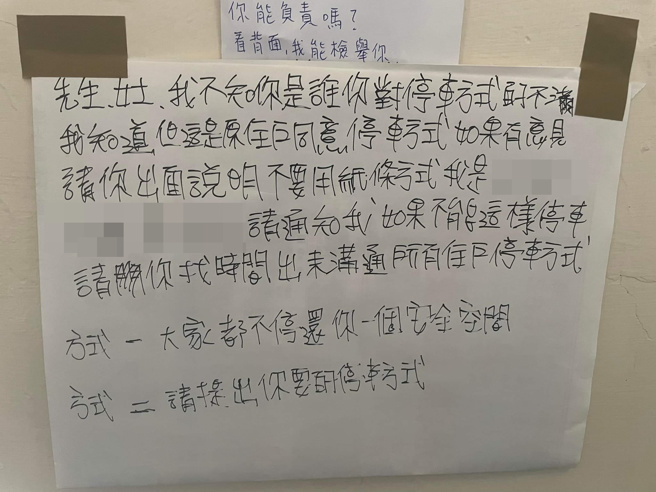 你能負責嗎？
看背面，我能檢舉你
先生、女士、我不知你是誰你對停車方式的不滿
我知道，但這是原住戶同意，停車方式如果有意見
請你出面說明不要用紙條方式我是
請通知我如果不能這樣停車
請麻你找時間出來溝通所有住戶停車方式
方式一大家都不停還你一個安全空間
方式二請提出你要的停車方式